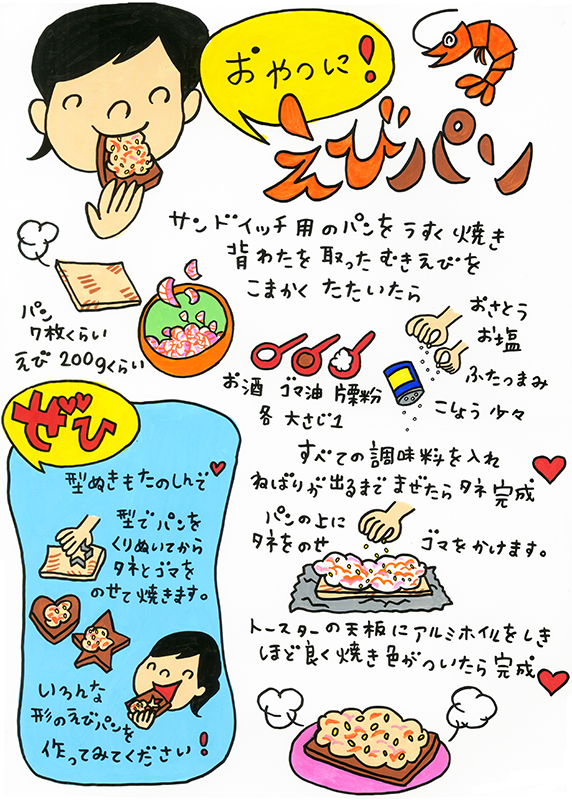 おやつに!
えびパン
サンドイッチ用のパンをうすく焼き
背わたを取ったむきえびを
こまかくたたいたら
パン
7枚くらい
えび 200gくらい
おさとう
お塩
ふたつまみ
こしょう少々
お酒 ゴマ油 片栗粉
各 大さじ1
すべての調味料を入れ
ねばりが出るまでまぜたらタネ完成
パンの上に
タネをのせ
ゴマをかけます。
トースターの天板にアルミホイルをしき
ほど良く焼き色がついたら完成
ぜひ
型ぬきもたのしんで
型でパンを
くりぬいてから
タネとゴマを
のせて焼きます。
いろんな
形のえびパンを
作ってみてください!